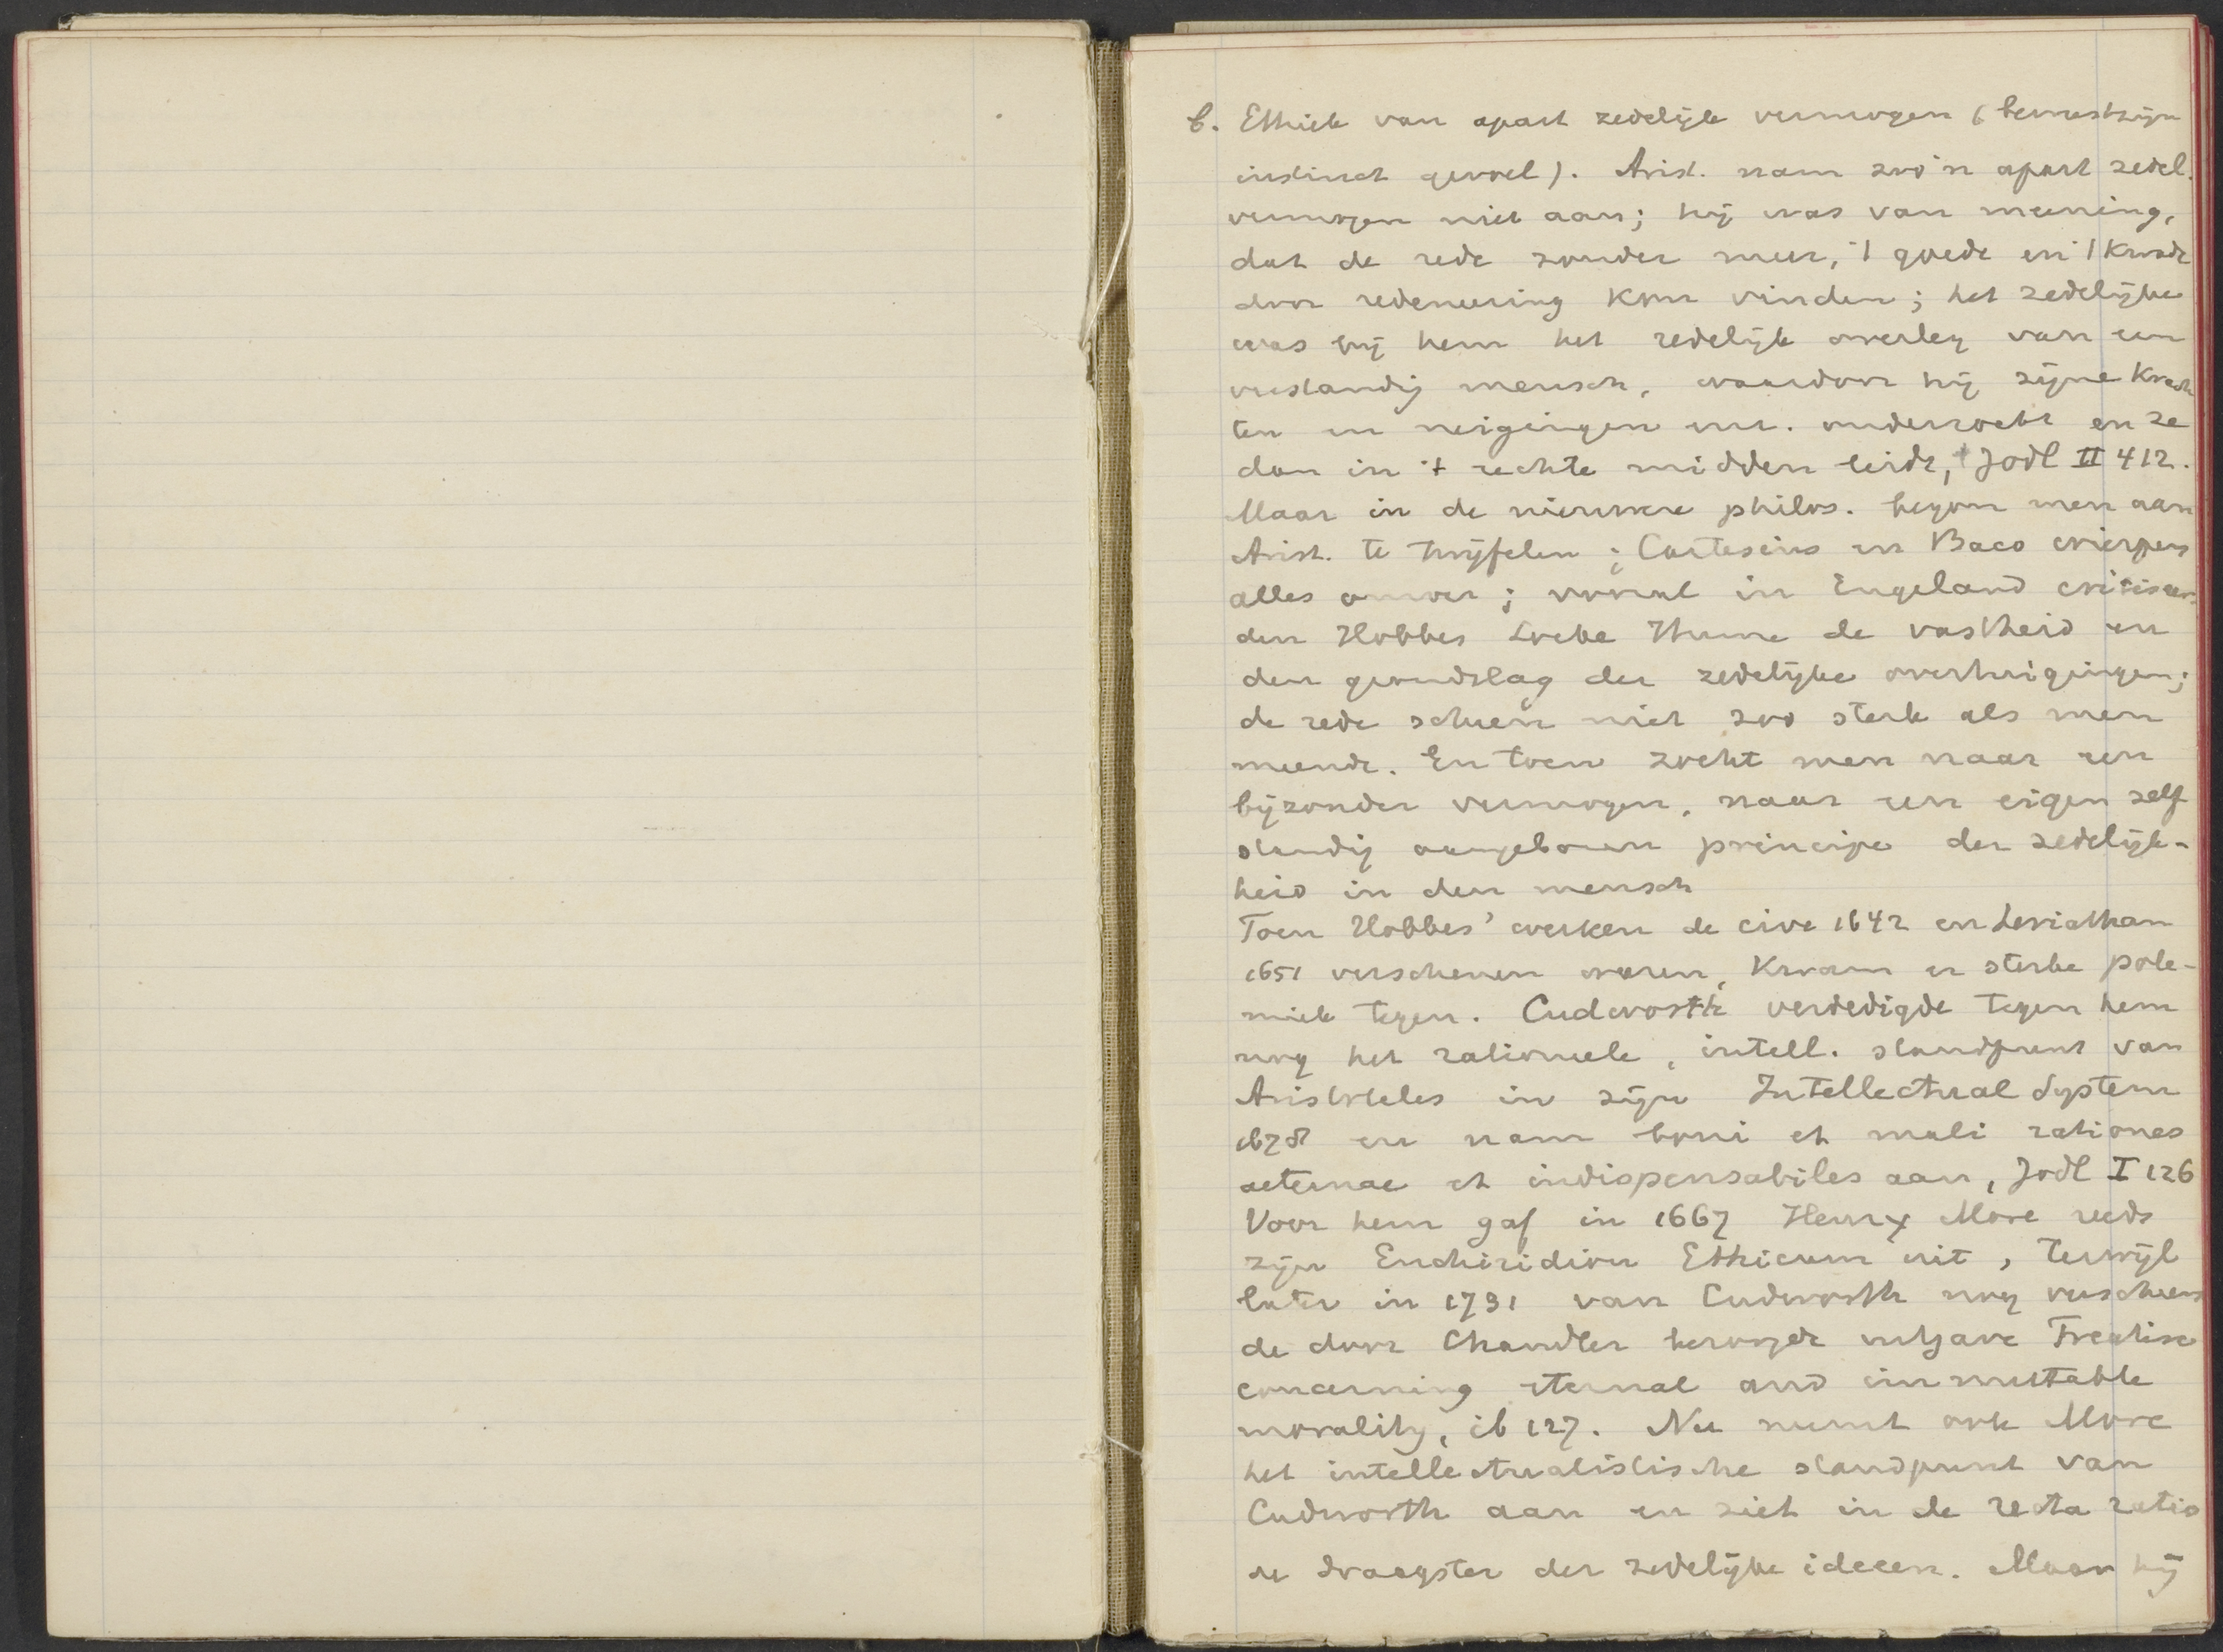 b. Ethiek van apart zedelijk vermogen (bewustzijn
instinct gevoel). Arist. nam zoo'n apart zedel.
vermogen niet aan; hij was van meening,
dat de rede zonder meer, 't goede en 't kwade
door redeneering kon vinden; het zedelijke
was bij hem het redelijk overleg van een
verstandig mensch, waardoor hij zijne krach
ten en neigingen onderzocht en ze
dan in 't rechte midden leidde, Jodl II 412.
Maar in de nieuwere philos. begon men aan
Arist. te twijfelen; Cartesius en Baco wierpen
alles omver; vooral in Engeland critiseer-
den Hobbes Locke Hume de vastheid en
den grondslag der zedelijke overtuigingen;
de rede scheen niet zoo sterk als men
meende. En toen zocht men naar een
bijzonder vermogen, naar een eigen zelf
standig aangeboren principe der zedelijk-
heid in den mensch
Toen Hobbes' werken de cive 1642 en Leviathan
1651 verschenen waren, kwam er sterke pole-
miek tegen. Cudworth verdedigde tegen hem
nog het rationeele, intell. standpunt van
Aristoteles in zijn Intellectual System
1678 en nam boni et mali rationes
aeternae et indispensabiles aan, Jodl I 126
Voor hem gaf in 1667 Henry More reeds
zijn Enchiridion Ethicum uit, terwijl
later in 1731 van Cudworth nog verscheen
de door Chandler bezorgde uitgave Treatise
concerning eternal and immutable
morality, ib 127. Nu neemt ook More
het intellectualistische standpunt van
Cudworth aan en ziet in de recta ratio
de draagster der zedelijke ideeen. Maar hij